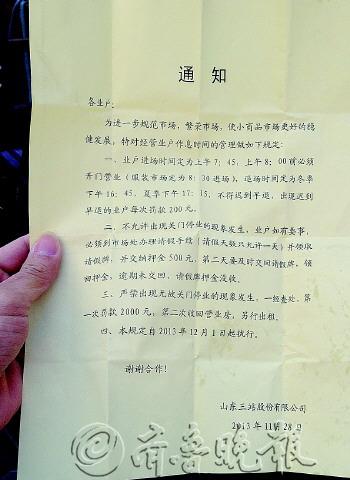 通 知
各业户:
为进一步规范市场,繁荣市场,使小商品市场更好的稳
健发展,特对经营业户作息时间的管理做如下规定:
一、业户进场时间定为上午7:45,上午8:00前必须
开门营业(服装市场定为8:30进场),退场时间定为冬季
下午16:45,夏季下午17:15,不得迟到早退,出现迟到
早退的业户每次罚款200元。
二、不允许出现关门停业的现象发生,业户如有些事,
必须到市场处办理请假手续(请假天数只允许一天)并领取
请假牌,并交纳押金500元,第二天要及时交回请假牌,领
回押金,逾期未交回,请假牌押金没收。
三、严禁出现无故关门停业的现象发生,一经查处,第
一次罚款2000元,第二次收回营业房,另行出租。
四、本规定自2013年12月1日起执行。
谢谢合作!
山东三站股份有限公司
2013年11月28日
齐鲁晚报